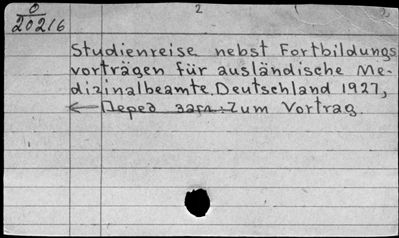 O
20216
2
Studienreise nebst Fortbildungs
vorträgen für ausländische Me-
dizinalbeamte. Deutschland 1927,
← Перед загл: Zum Vortrag.